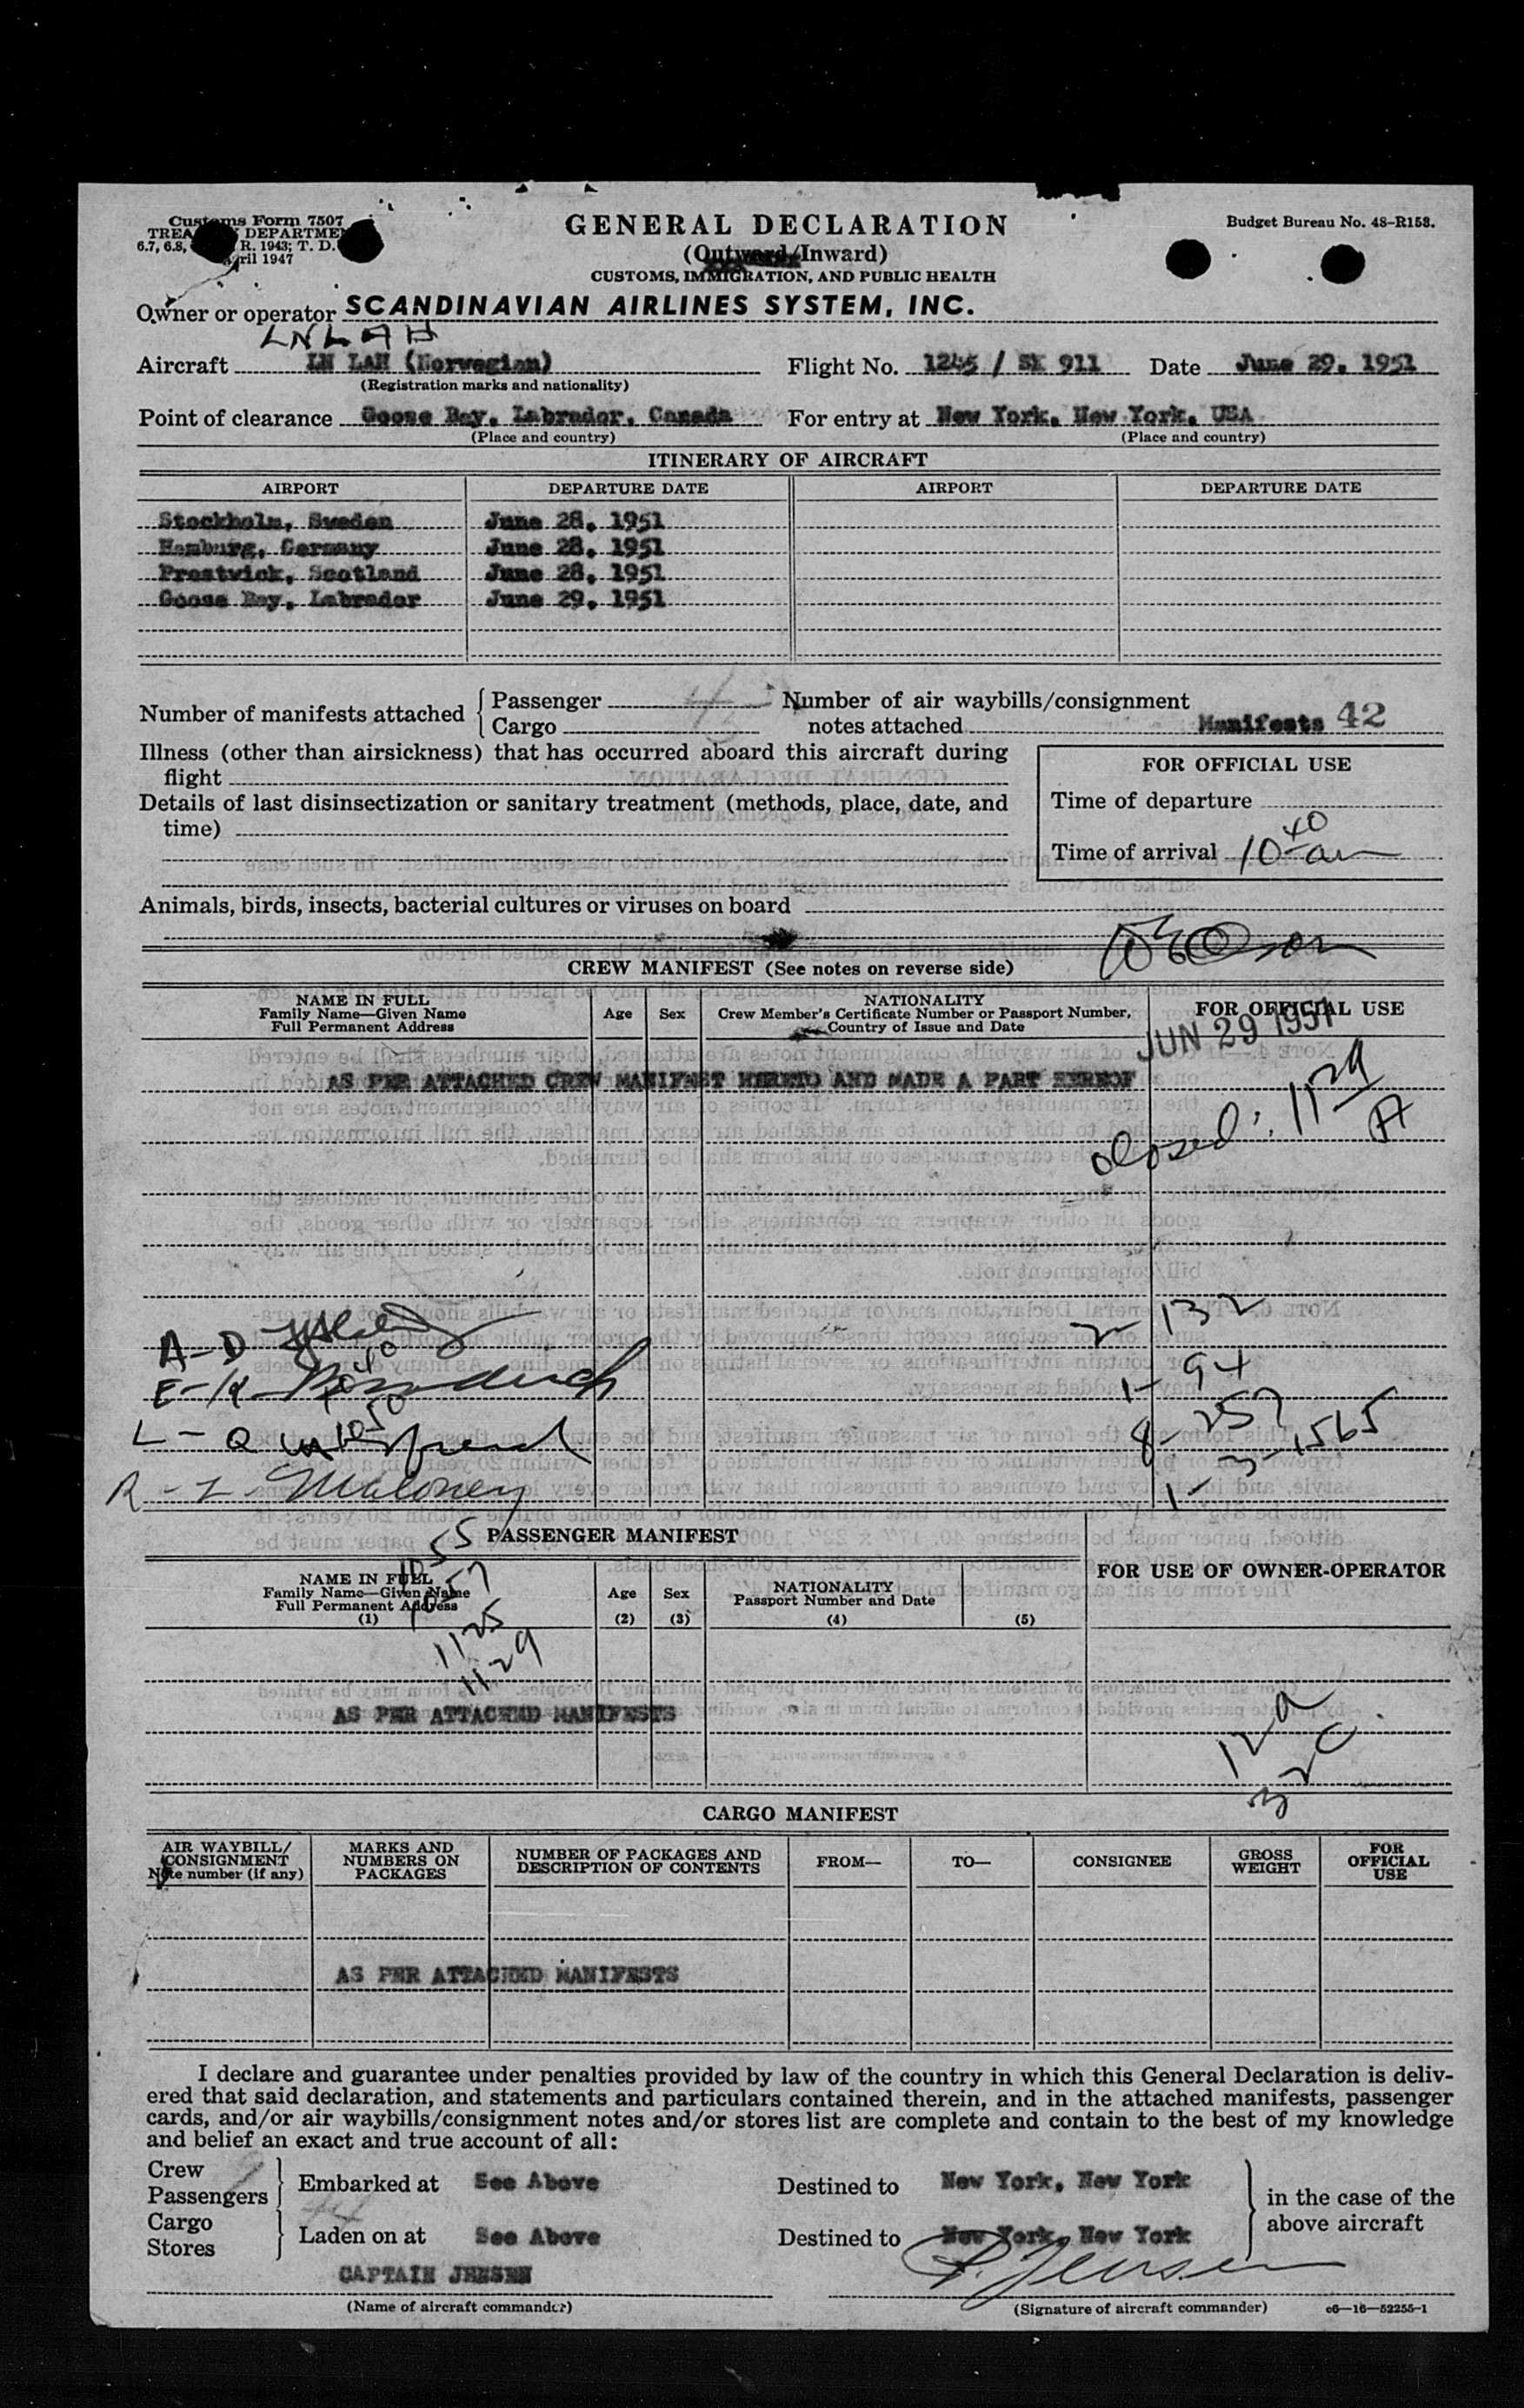 Customs Form 7507
TREA DEPARTMEN
6.7, 6.8, R. 1943; T. D.
April 1947
GENERAL DECLARATION
(Outward/Inward)
CUSTOMS, IMMIGRATION, AND PUBLIC HEALTH
Budget Bureau No. 48–R158.
Owner or operator SCANDINAVIAN AIRLINES SYSTEM, INC.
LNLAH
Aircraft LN LAH (Norwegian) Flight No. 1245 / SK 911 Date June 29, 1951
(Registration marks and nationality)
Point of clearance Goose Bay, Labrador, Canada For entry at New York, New York, USA
(Place and country) (Place and country)
ITINERARY OF AIRCRAFT
AIRPORT DEPARTURE DATE AIRPORT DEPARTURE DATE
Stockholm, Sweden June 28, 1951
Hamburg, Germany June 28, 1951
Prestwick, Scotland June 28, 1951
Goose Bay, Labrador June 29, 1951
Number of manifests attached { Passenger Number of air waybills/consignment
Cargo notes attached Manifests 42
Illness (other than airsickness) that has occurred aboard this aircraft during
flight
FOR OFFICIAL USE
Details of last disinsectization or sanitary treatment (methods, place, date, and
time)
Time of departure
Time of arrival 10 40 am
Animals, birds, insects, bacterial cultures or viruses on board
CREW MANIFEST (See notes on reverse side)
NAME IN FULL
Family Name—Given Name
Full Permanent Address
Age Sex
NATIONALITY
Crew Member's Certificate Number or Passport Number,
Country of Issue and Date
FOR OFFICIAL USE
JUN 29 1951
AS PER ATTACHED CREW MANIFEST HERETO AND MADE A PART HEREOF
closed: 1129 A
2- 132
A-D
1- 94
E-K
8- 257
L-Q 1050
1-3-1565
R-Z- Maloney
PASSENGER MANIFEST
1055
1057
1125
1129
NAME IN FULL
Family Name—Given Name
Full Permanent Address
(1)
Age
(2)
Sex
(3)
NATIONALITY
Passport Number and Date
(4) (5)
FOR USE OF OWNER-OPERATOR
AS PER ATTACHED MANIFESTS
12 a
32 C
CARGO MANIFEST
AIR WAYBILL/
CONSIGNMENT
Note number (if any)
MARKS AND
NUMBERS ON
PACKAGES
NUMBER OF PACKAGES AND
DESCRIPTION OF CONTENTS
FROM— TO— CONSIGNEE
GROSS
WEIGHT
FOR
OFFICIAL
USE
AS PER ATTACHED MANIFESTS
I declare and guarantee under penalties provided by law of the country in which this General Declaration is deliv-
ered that said declaration, and statements and particulars contained therein, and in the attached manifests, passenger
cards, and/or air waybills/consignment notes and/or stores list are complete and contain to the best of my knowledge
and belief an exact and true account of all:
Crew
Passengers } Embarked at See Above Destined to New York, New York
Cargo
Stores } Laden on at See Above Destined to New York, New York
in the case of the
above aircraft
CAPTAIN JENSEN P. Jensen
(Name of aircraft commander) (Signature of aircraft commander) c6—16—52255-1